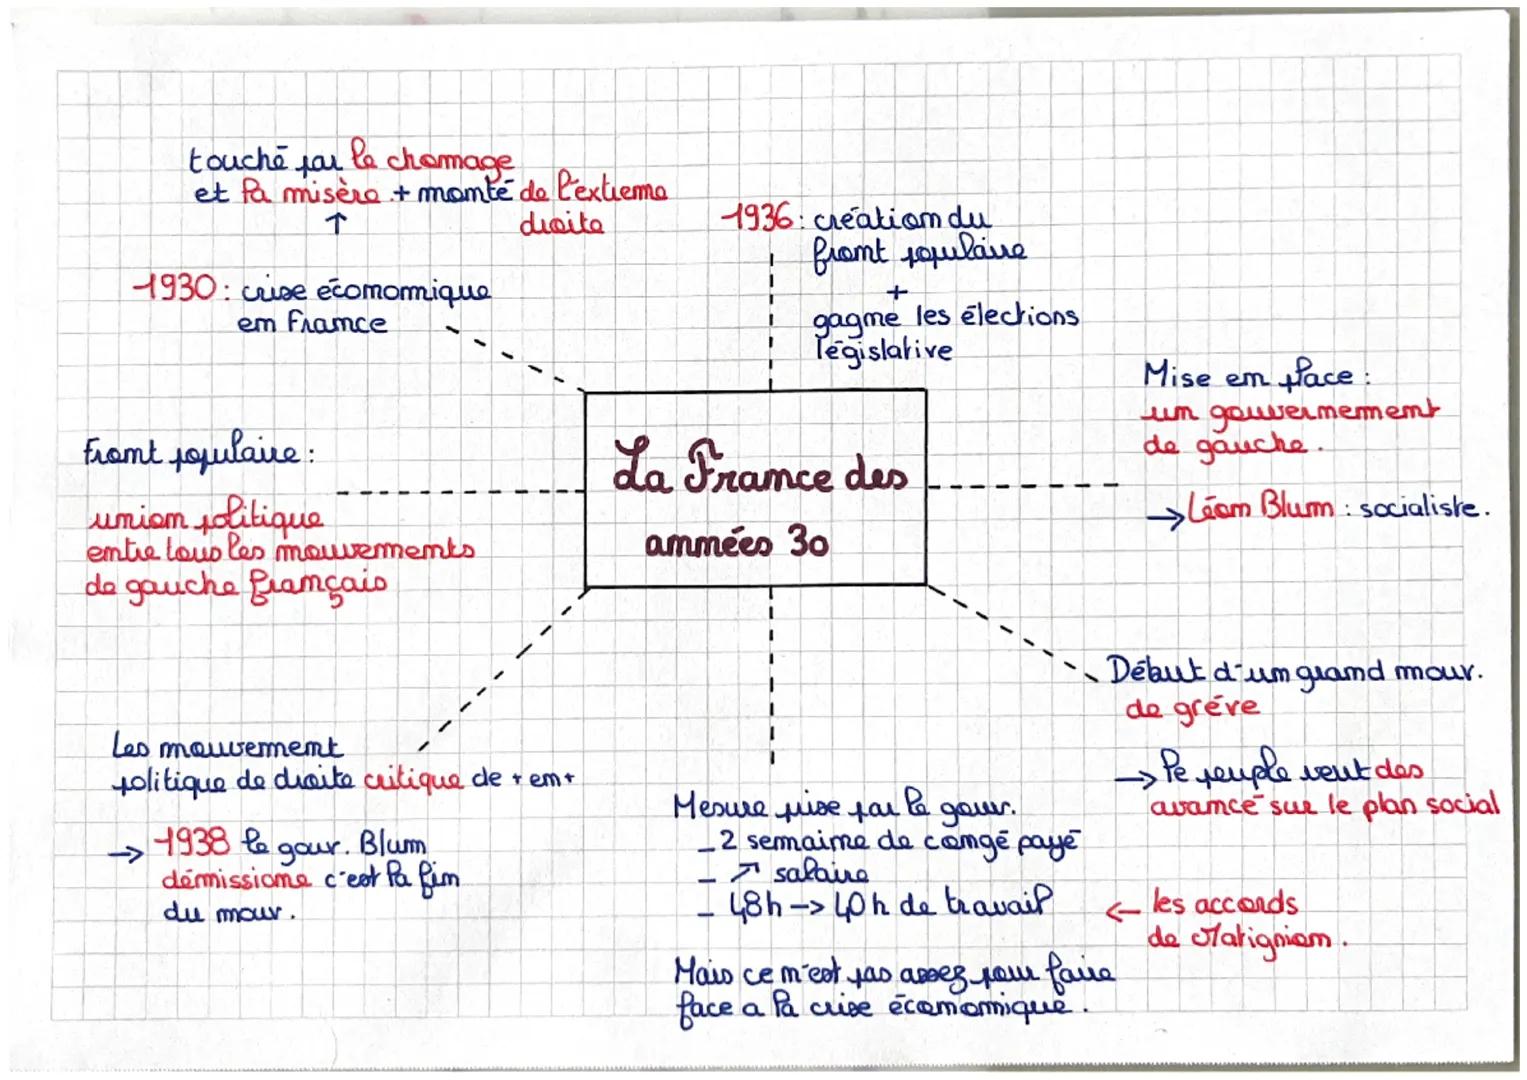 touché par le chomage
et la misère + monté de l'extreme
droite
↑
1930 : crise économique
en France
1936 : création du
front populaire
+
gagne les élections
législative
Mise en place :
un gouvernement
de gauche.
→ Léon Blum : socialiste.
front populaire :
union politique
entre tous les mouvements
de gauche français
La France des
années 30
Début d'un grand mouv.
de gréve
→ le peuple veut des
avancé sur le plan social
Les mouvement
politique de droite critique de + en +
→ 1938 le gouv. Blum
démissione c'est la fin
du mouv.
Mesure prise par le gouv.
- 2 semaine de congé payé
- ↗ salaire
- 48h -> 40h de travail
← les accords
de Matignion.
Mais ce n'est pas assez pour faire
face a la crise économique.